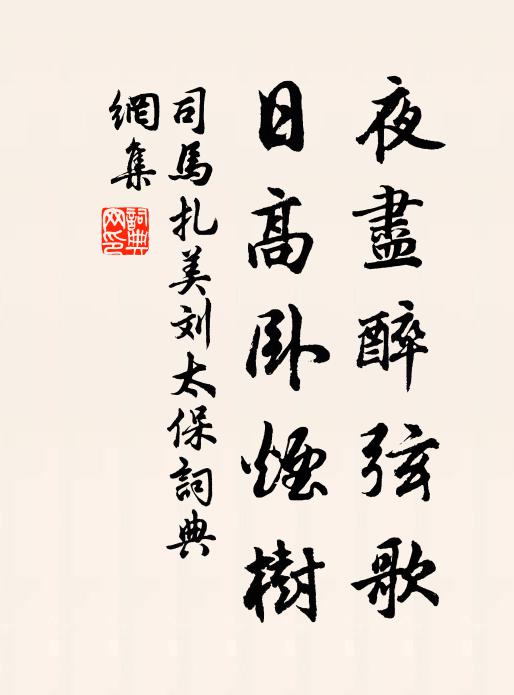 夜盡醉弦歌
日高卧煙樹
司馬扎美刘太保詞典
網集
詞典網印